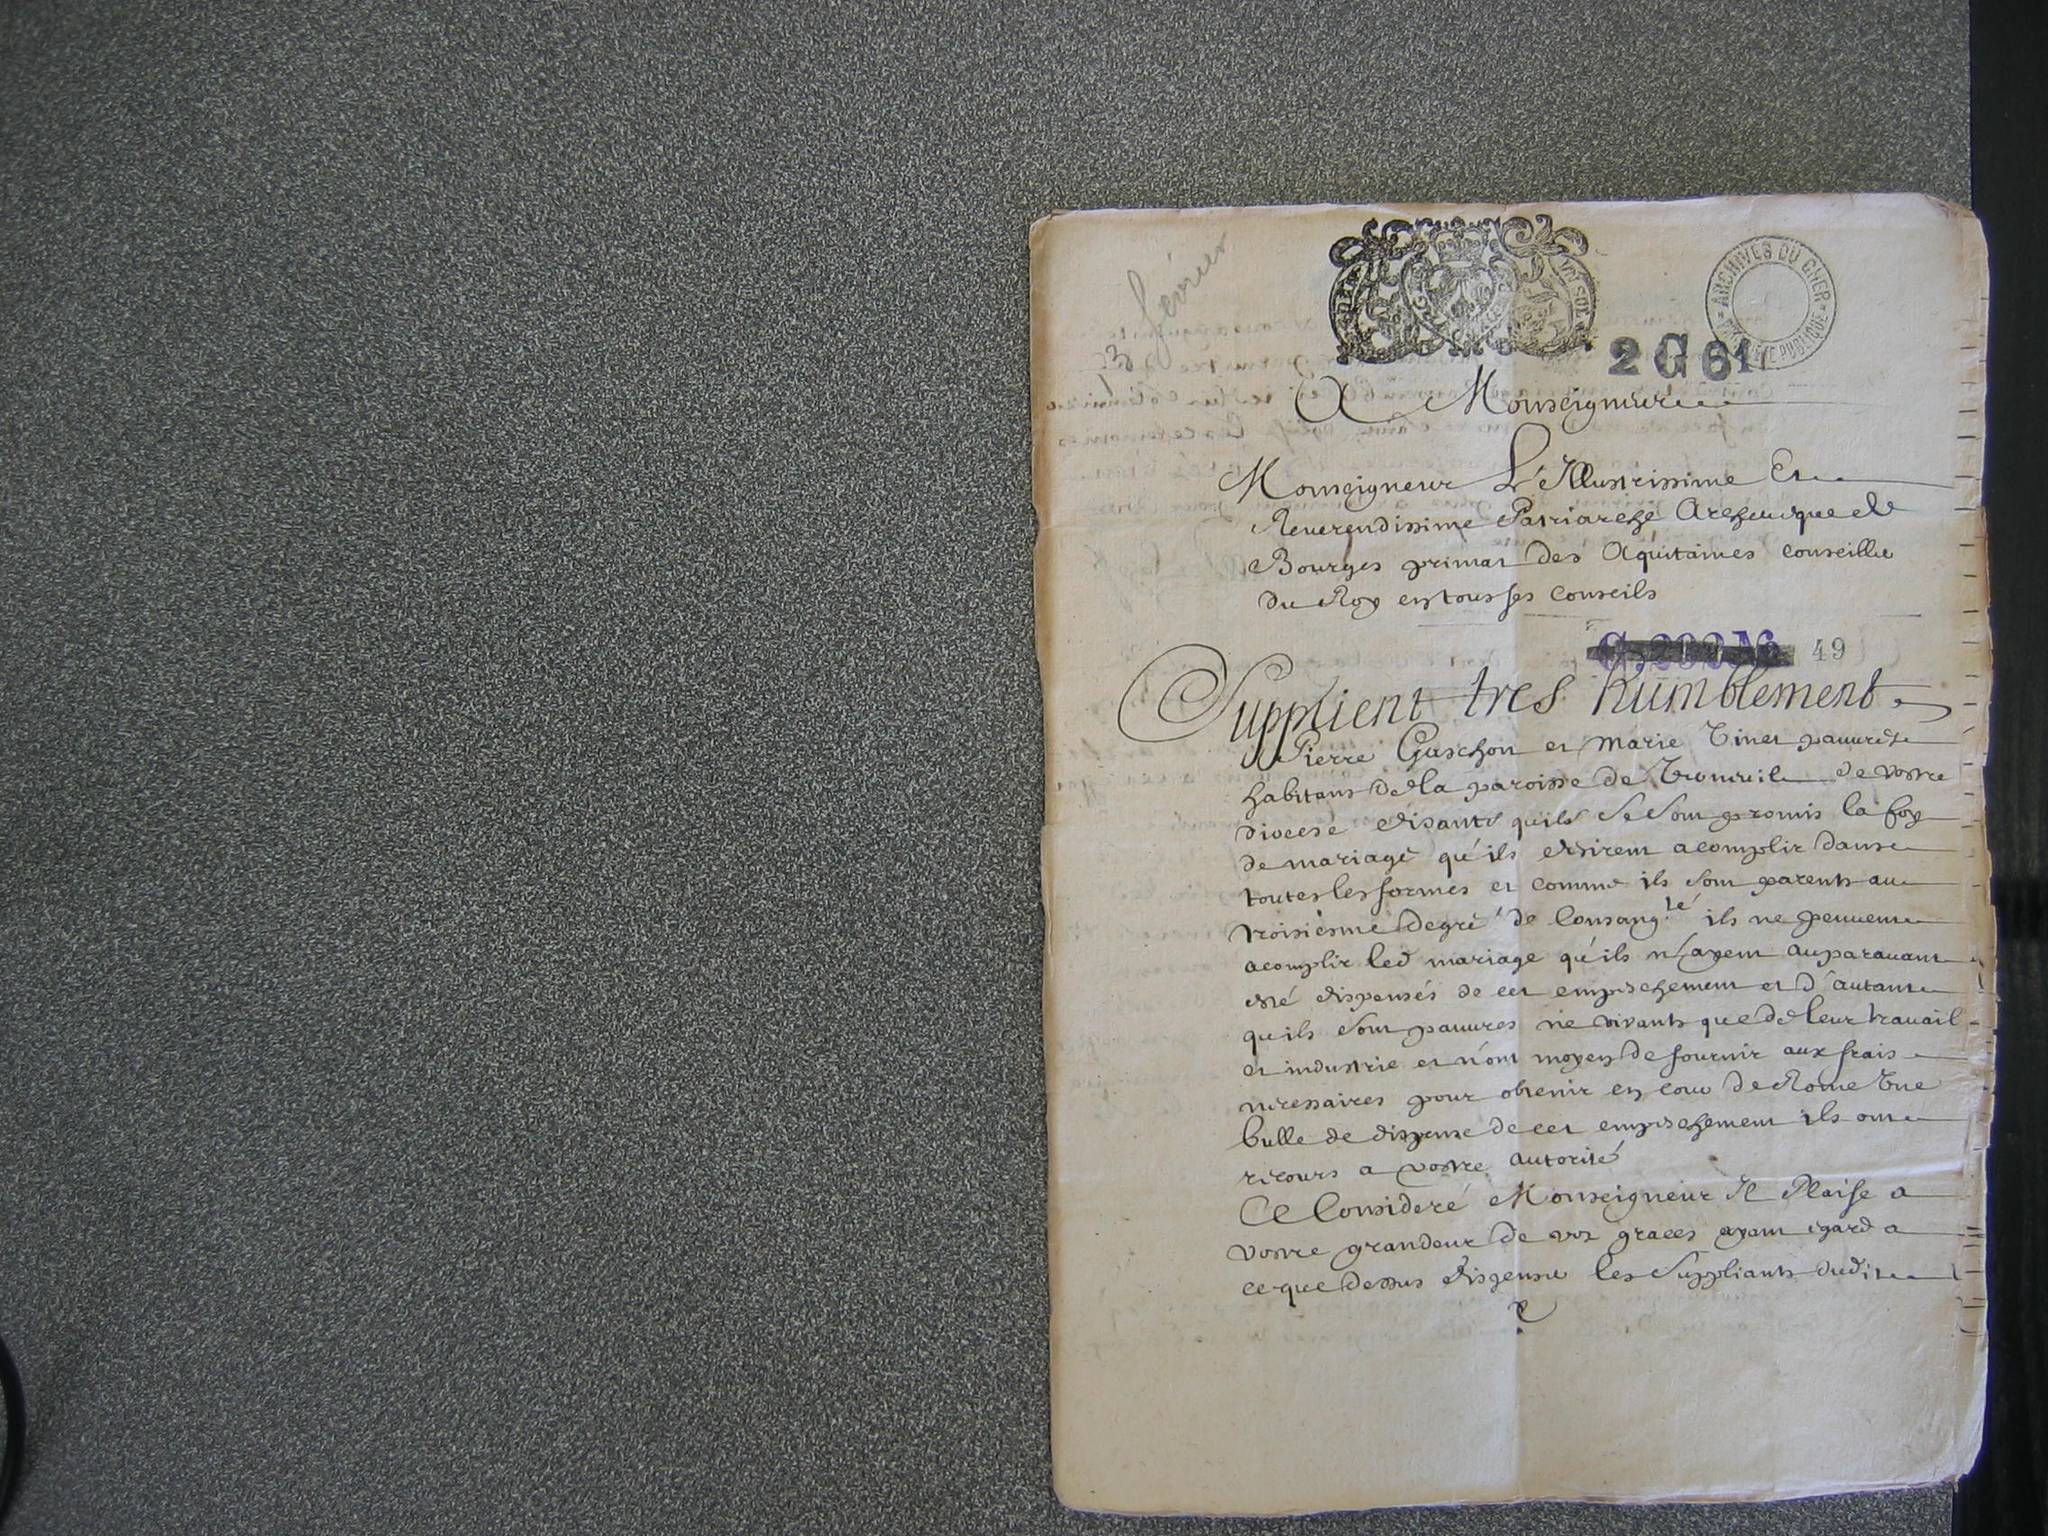 fevrier
ARCHIVES DU CHER
PROPRIÉTÉ PUBLIQUE
2 G 61
A Monseigneur
Monseigneur L'Illustrissime Et
Reuerendissime Patriarche Archeuesque de
Bourges primat des Aquitaines conseiller
du Roy en tous ses conseils
49
Supplient tres humblement
Pierre Guschon et marie Tinet pauures
habitans de la paroisse de de vostre
diocese disants quils se sont promis la foy
de mariage qu'ils desirent acomplir dans
toutes les formes et comme ils sont parents au
troisiesme degré de consang.té ils ne peuuent
acomplir led mariage qu'ils n'ayent auparauant
esté dispensés de cet empeschement et d'autant
quils sont pauures ne vivants que de leur trauail
et industrie et n'ont moyen de fournir aux frais
necessaires pour obtenir en cour de Rome vne
bulle de dispense de cet empeschement ils ont
recours a vostre autorité
Ce Consideré Monseigneur Il Plaise a
vostre grandeur de vos graces ayant egard a
ce que dessus dispenser les suppliants dudit